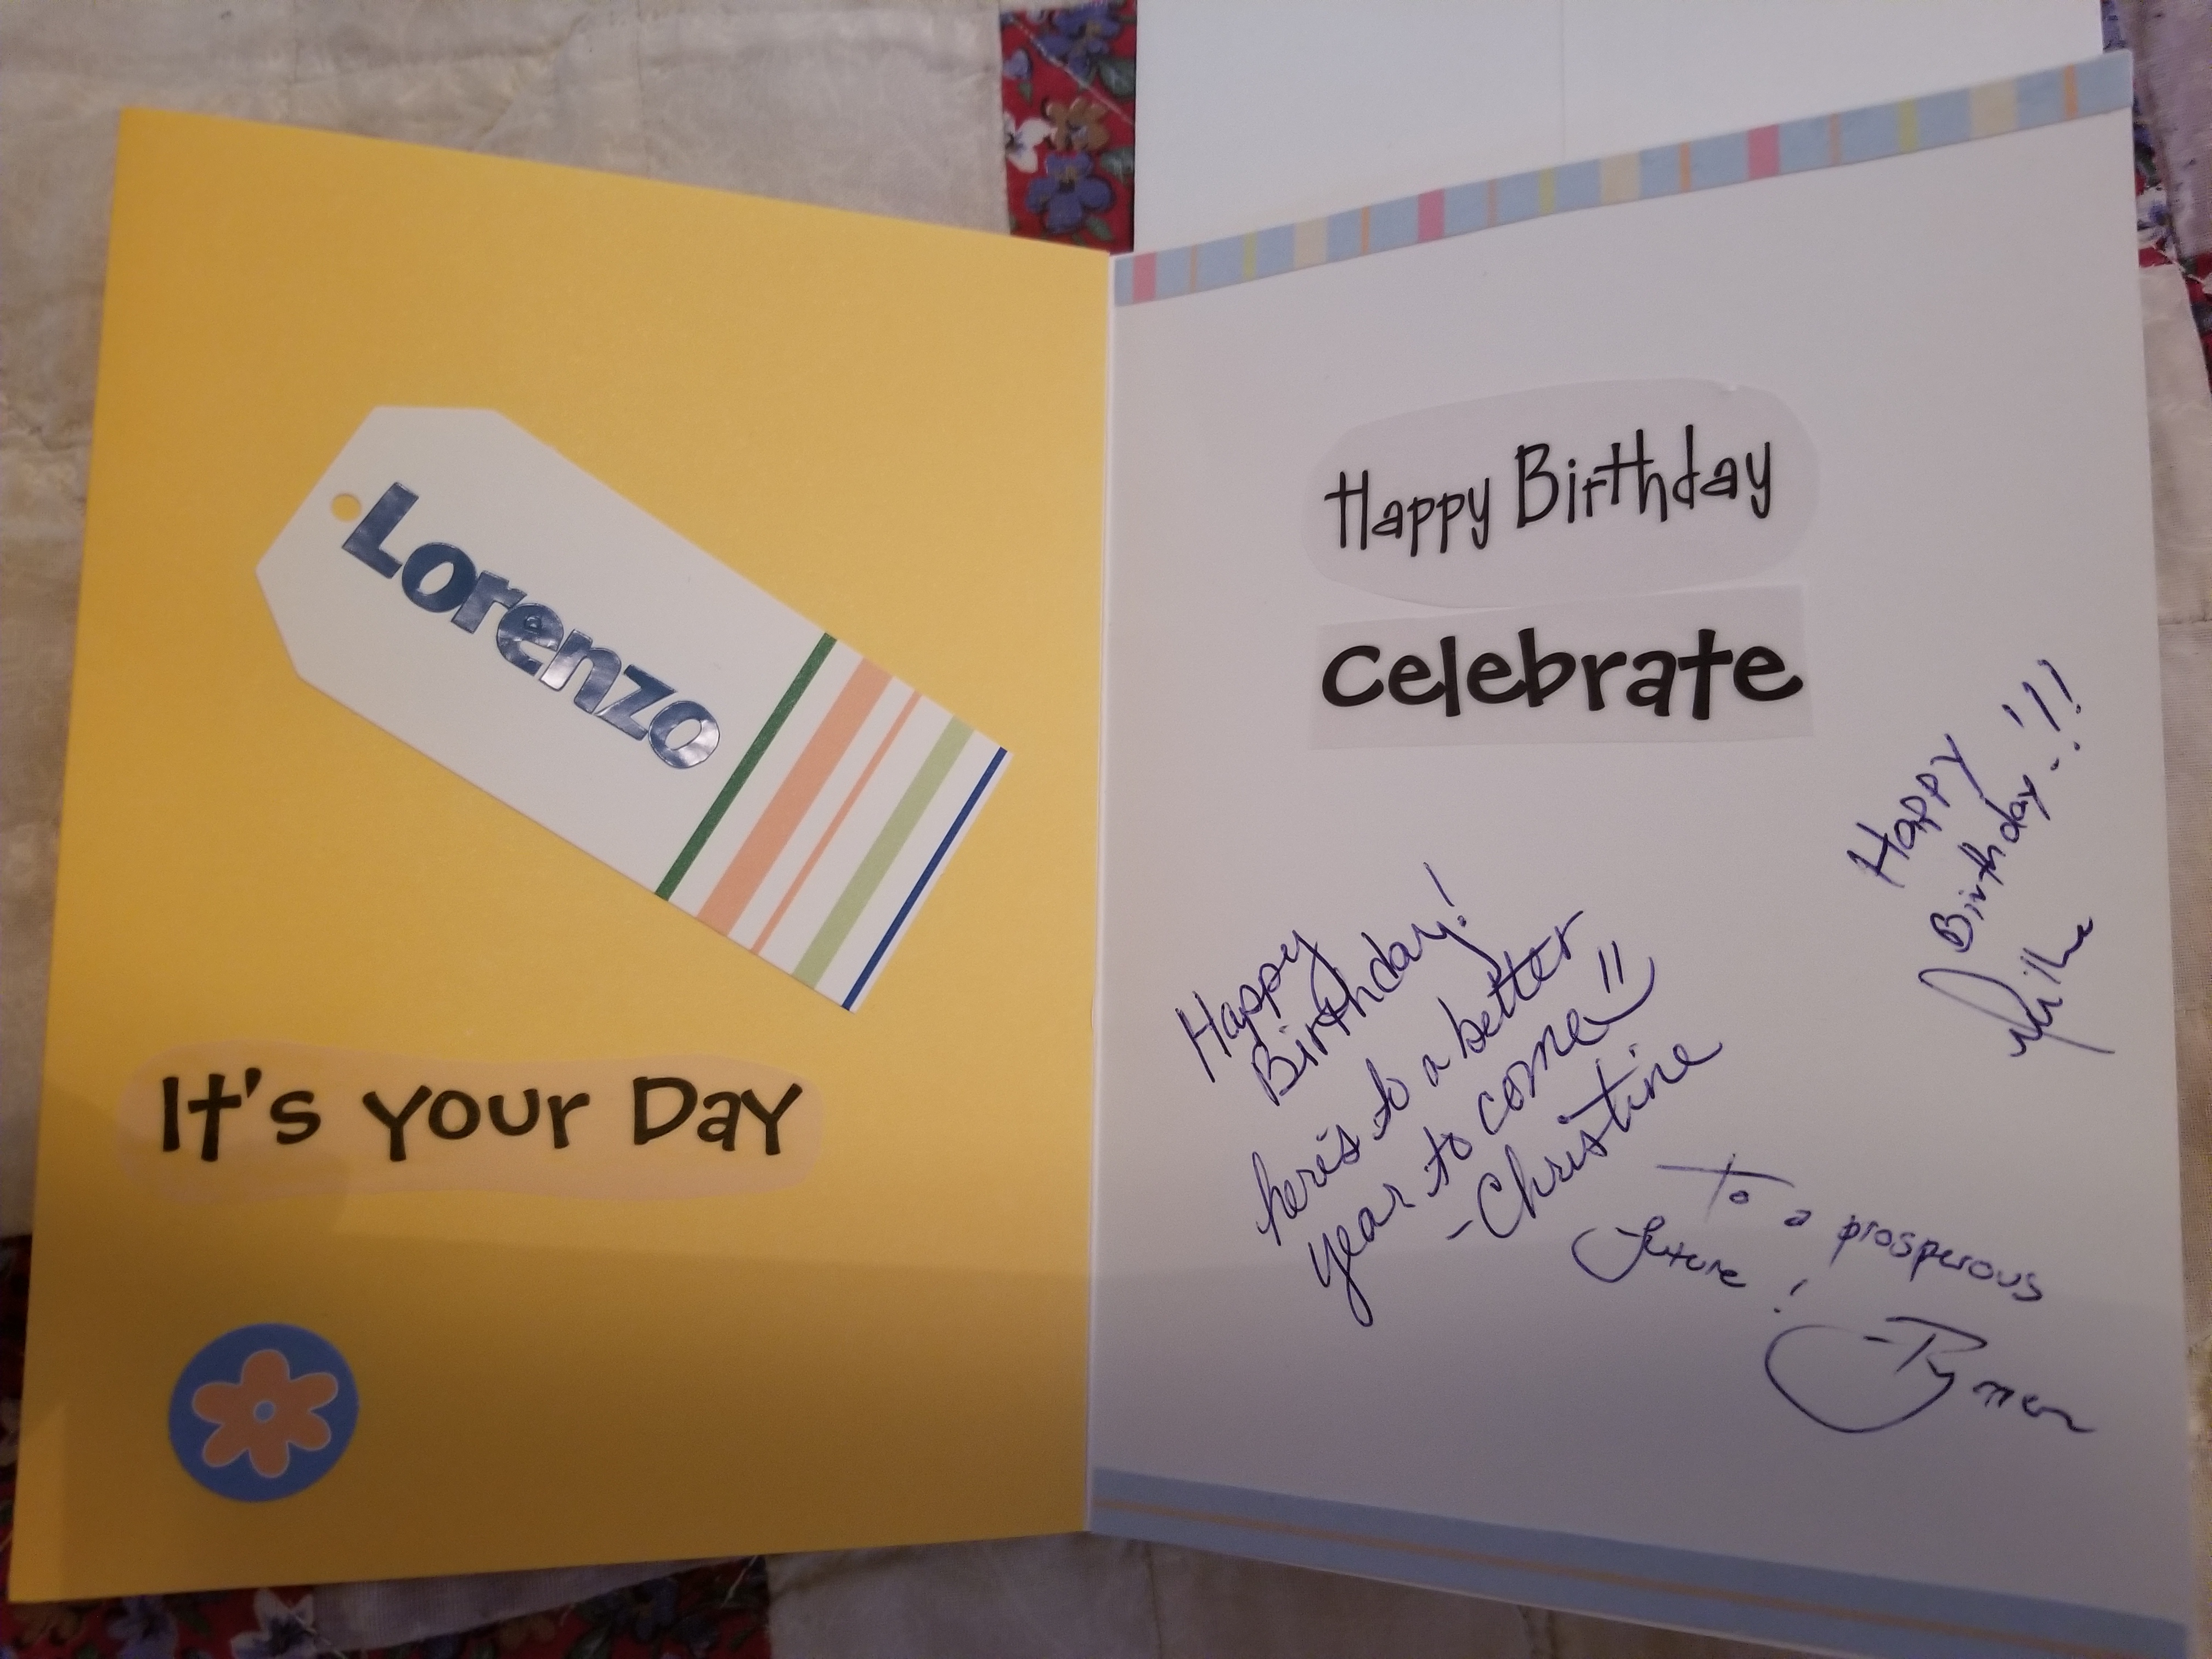 Lorenzo
It's your Day
Happy Birthday
celebrate
Happy
Birthday!!!
Mike
Happy
Birthday!
here's to a better
year to come
-Christine
To a prosperous
future!